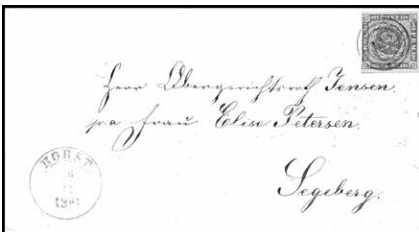 Herr Obergerichtsrath Jensen.
p.a Frau Elise Petersen.
Segeberg.
HORST.
1861